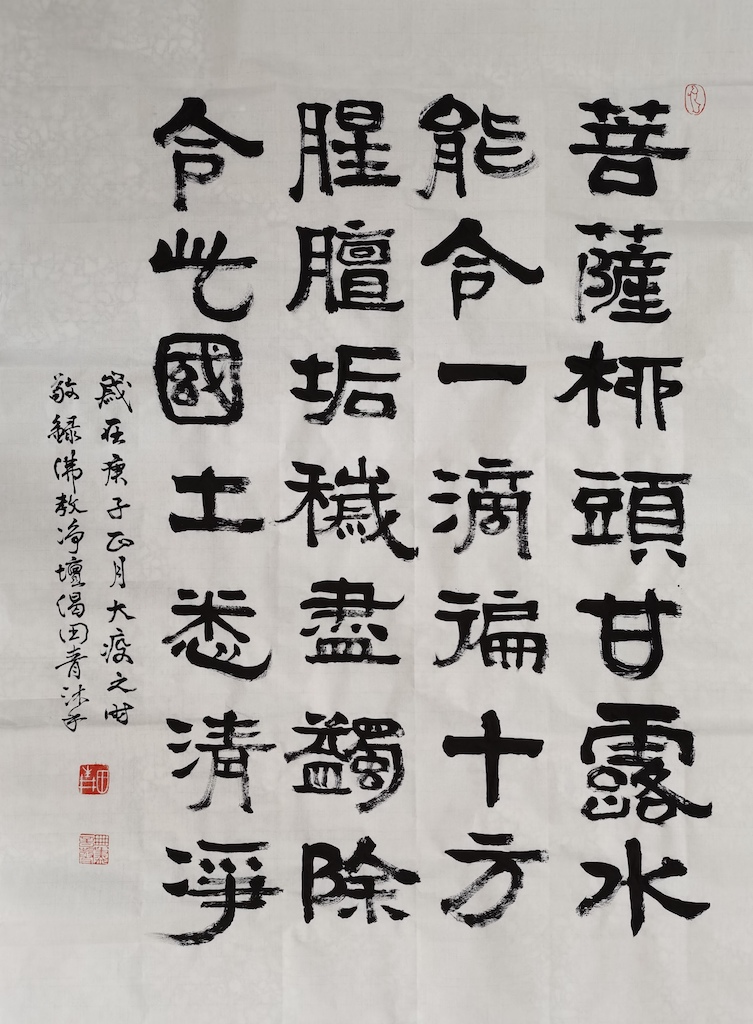 菩薩柳頭甘露水
能令一滴徧十方
腥膻垢穢盡蠲除
令此國土悉清淨
歲在庚子正月大疫之时
敬録佛教净壇偈田青沐手
田青